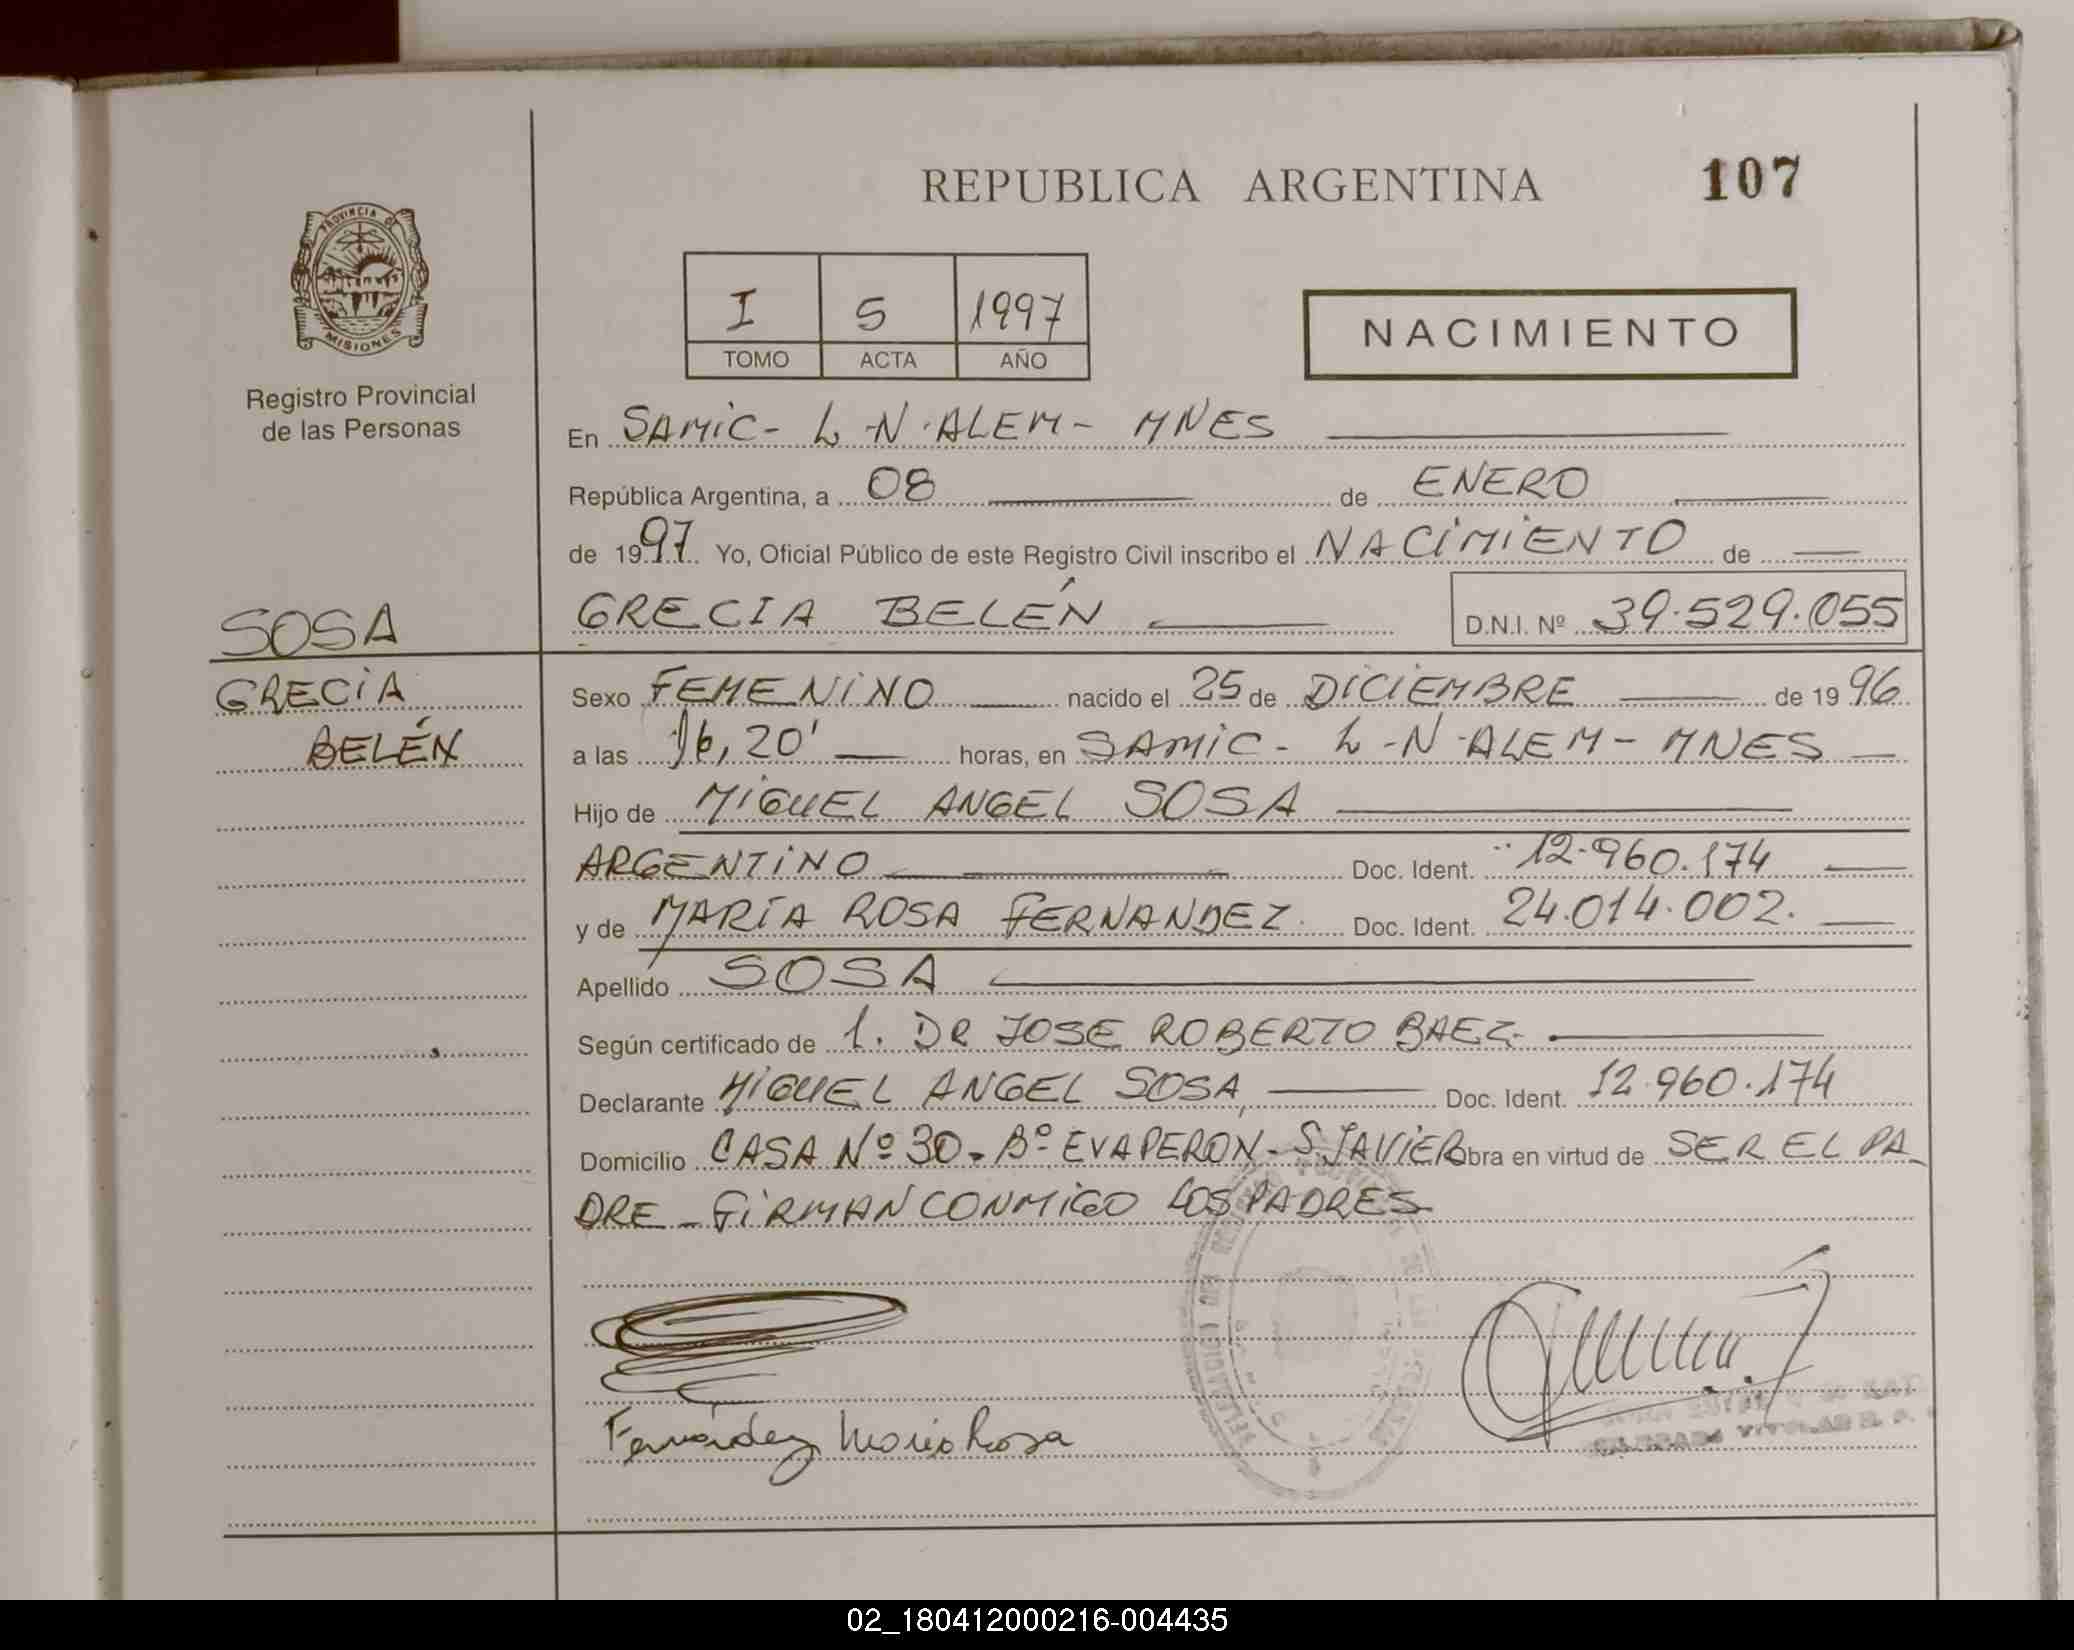 REPUBLICA ARGENTINA
107
PROVINCIA DE
MISIONES
Registro Provincial
de las Personas
I 5 1997
TOMO ACTA AÑO
NACIMIENTO
En SAMIC- L-N-ALEM- MNES
República Argentina, a 08 de ENERO
de 1997 Yo, Oficial Público de este Registro Civil inscribo el NACIMIENTO de
GRECIA BELÉN D.N.I. Nº 39.529.055
SOSA
GRECIA
BELÉN
Sexo FEMENINO nacido el 25 de DICIEMBRE de 1996
a las 16,20' horas, en SAMIC- L-N-ALEM- MNES
Hijo de MIGUEL ANGEL SOSA
ARGENTINO Doc. Ident. 12.960.174
y de MARÍA ROSA FERNANDEZ. Doc. Ident. 24.014.002.
Apellido SOSA
Según certificado de 1. DR JOSE ROBERTO BAEZ
Declarante MIGUEL ANGEL SOSA, Doc. Ident. 12.960.174
Domicilio CASA Nº 30. Bº EVAPERON- S.JAVIER Obra en virtud de SER EL PA_
DRE - FIRMAN CONMIGO LOS PADRES
Fernández María Rosa
02_180412000216-004435